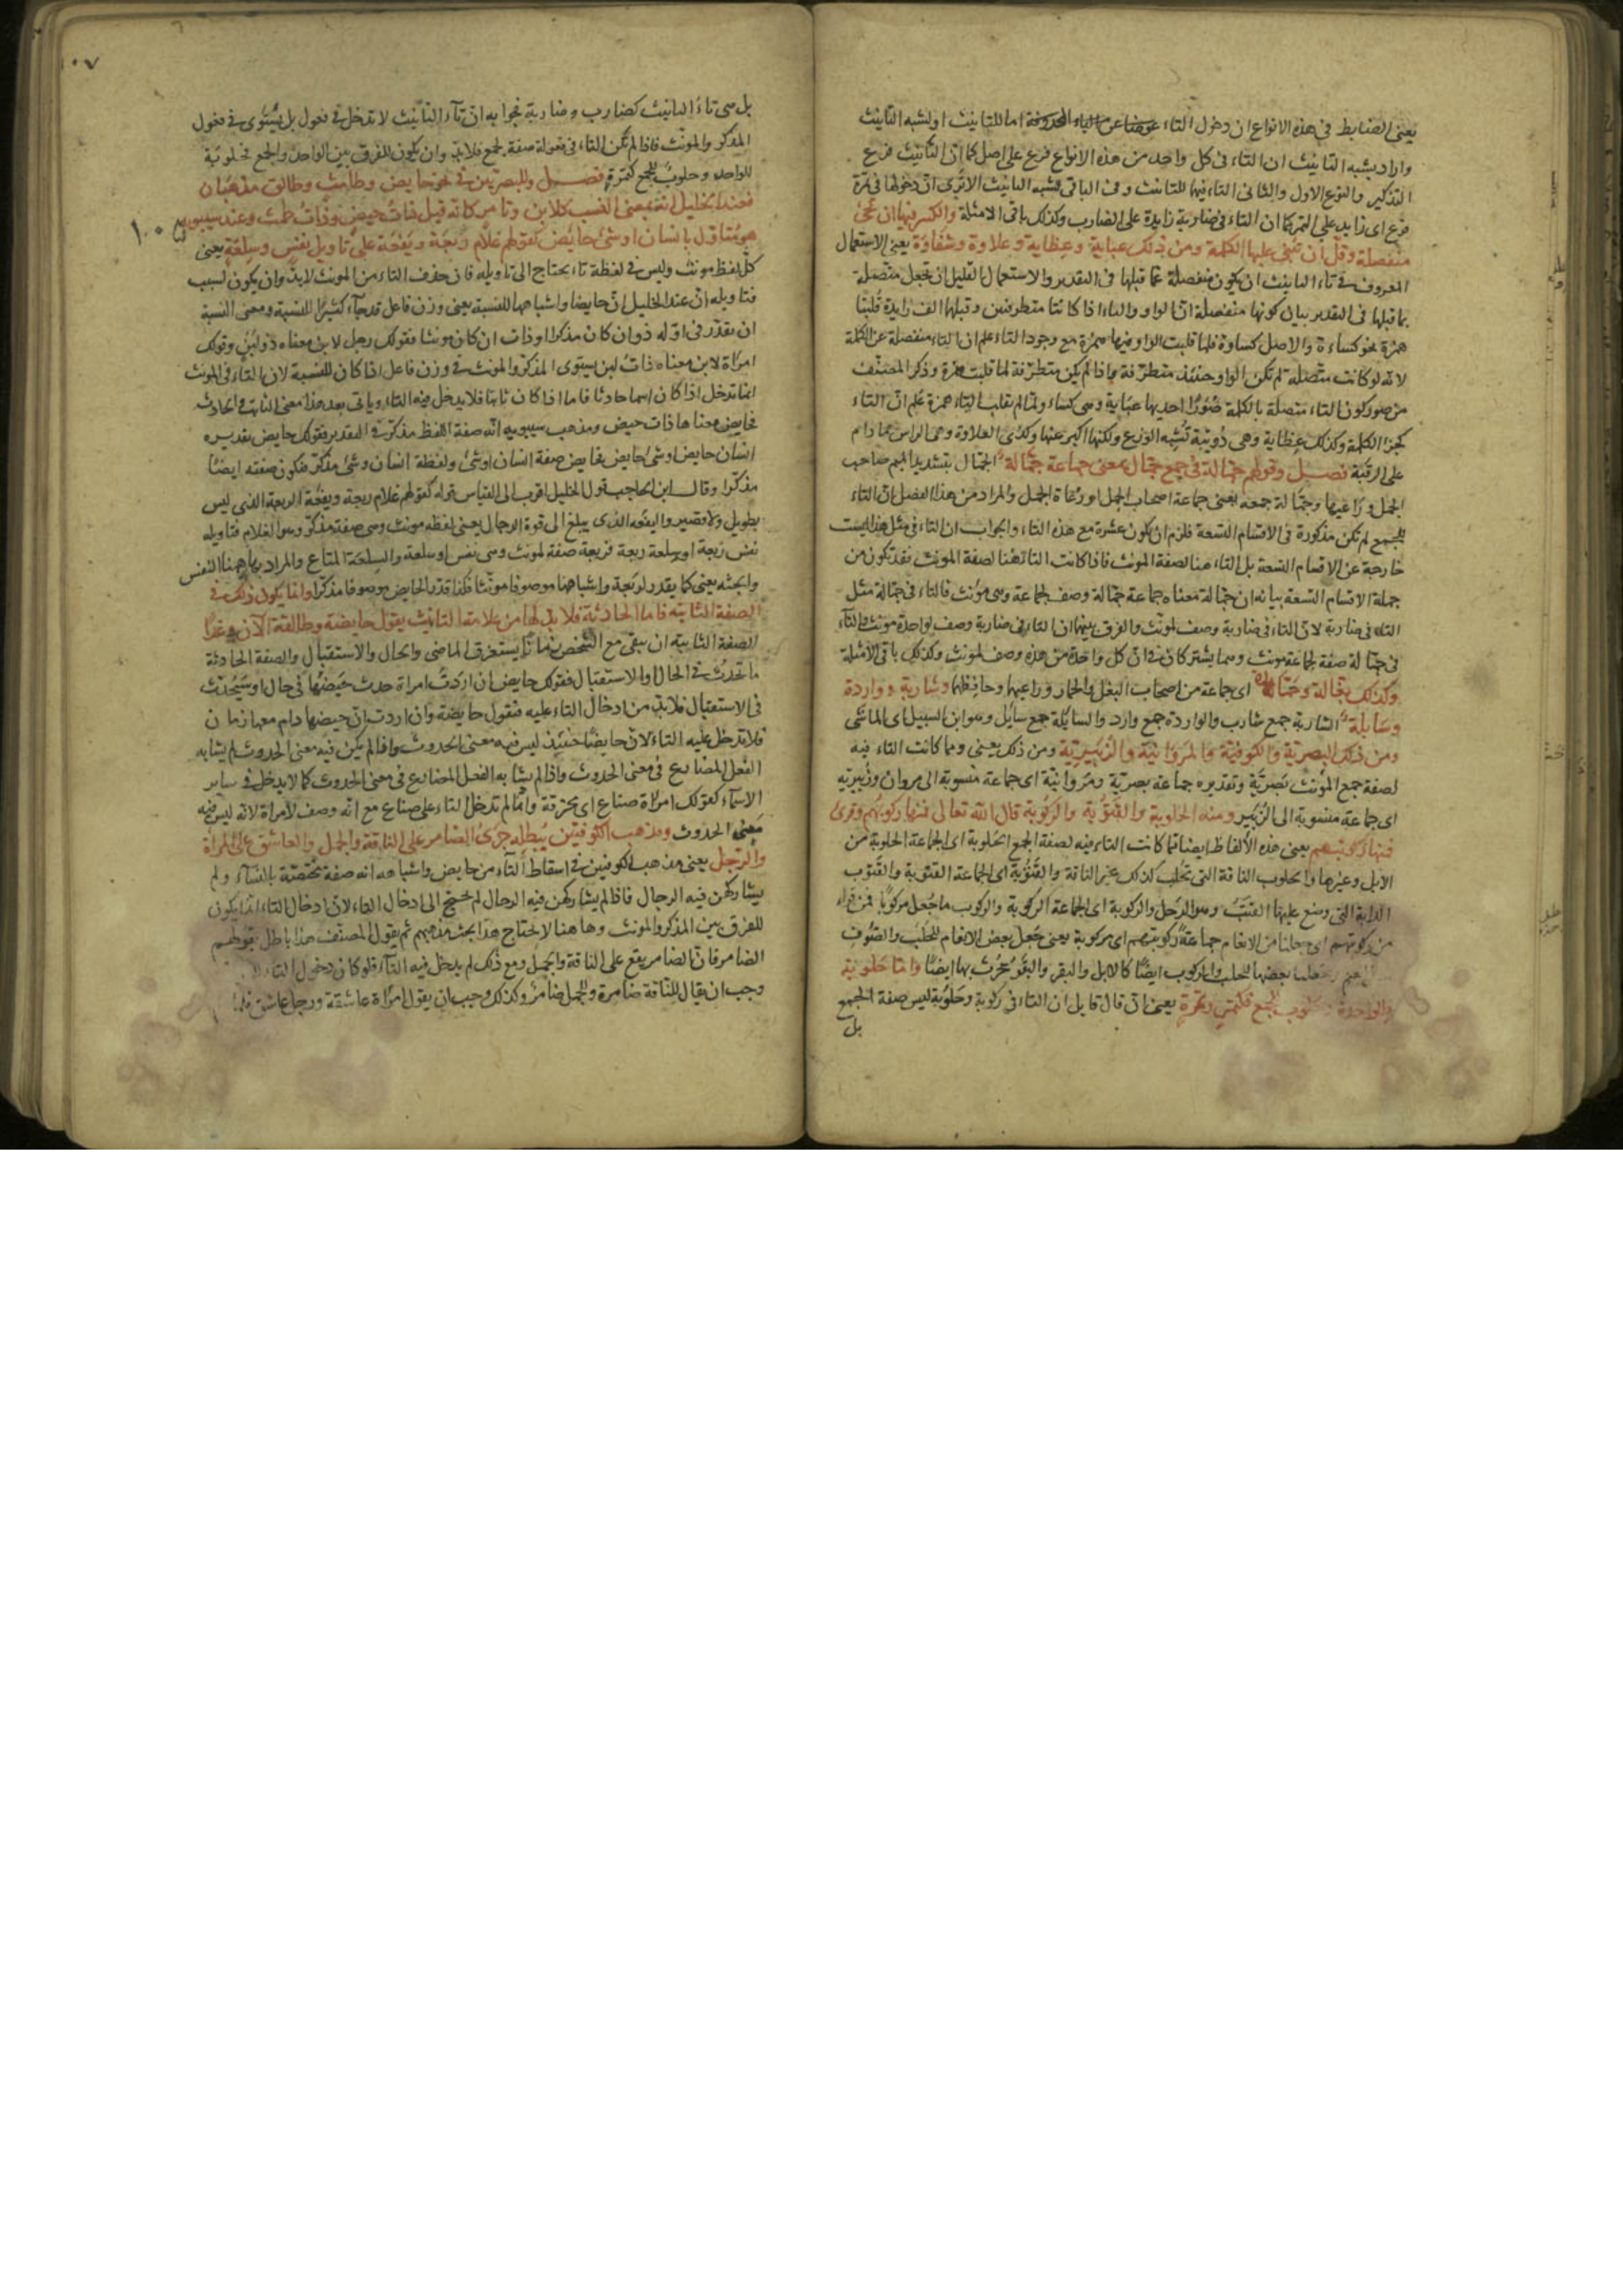 يعنى الضابط فى هذه الانواع ان دخول التاء عوضا عن الياء المحذوفة اما للتانيث او لشبه التانيث
واراد بشبه التانيث ان التاء فى كل واحد من هذه الانواع فرع على اصل كما ان التانيث فرع
التذكير والنوع الاول والثانى التاء فيها للتانيث وفى الباقى لشبه التانيث الا ترى ان دخولها فى تمرة
فرع اى زايد على التمر كما ان التاء فى ضاربة زايدة على الضارب وكذلك باقى الامثلة والكثير فيها ان تجئ
منفصلة وقل ان تبنى عليها الكلمة ومن ذلك عباية وعظاية وعلاوة وشقاوة يعنى الاستعمال
المعروف فى تاء التانيث ان يكون منفصلة عما قبلها فى التقدير والاستعمال القليل ان تجعل متصلة
بما قبلها فى التقدير بيان كونها منفصلة ان الواو والياء اذا كانتا متطرفتين وقبلها الف زايدة قلبتا
همزة نحو كساءة والاصل كساوة فلما قلبت الواو فيها همزة مع وجود التاء علم ان التاء منفصلة عن الكلمة
لانه لو كانت متصلة لم تكن الواو حينئذ متطرفة واذا لم يكن متطرفة لما قلبت همزة وذكر المصنف
من صور كون التاء متصلة بالكلمة صورا احديها عباية وهى كساء ولما لم يقلب الياء همزة علم ان التاء
كجزء الكلمة وكذلك عظاية وهى دويبة تشبه الوزغ ولكنها اكبر عنها وكذى العلاوة وهى الراس مما دام
على الرقبة فصل وقولهم جمالة فى جمع جمال بمعنى جماعة جمالة الجمال بتشديد الميم صاحب
الجمل وراعيها وجمالة جمعه يعنى جماعة اصحاب الجمل او رعاة الجمل والمراد من هذا الفصل ان التاء
للجمع لم تكن مذكورة فى الاقسام التسعة فلزم ان يكون عشرة مع هذه التاء والجواب ان التاء فى مثل هذا ليست
خارجة عن الاقسام التسعة بل التاء هنا لصفة المونث فاذا كانت التاء هنا لصفة المونث فقد تكون من
جملة الاقسام التسعة بيانه ان جمالة معناه جماعة جمالة وصف لجماعة وهى مؤنث فالتاء فى جمالة مثل
التاء فى ضاربة لان التاء فى ضاربة وصف لمونث والفرق بينهما ان التاء فى ضاربة وصف لواحدة مونث والتاء
فى جمالة صفة لجماعة مونث وهما يشتركان فى ان كل واحدة من هذه وصف لمونث وكذلك باقى الامثلة
وكذلك بغالة وحمارة اى جماعة من اصحاب البغل والحمار وراعيها وحافظها وشاربة وواردة
وسابلة الشاربة جمع شارب والواردة جمع وارد والسابلة جمع سابل وهو ابن السبيل اى الماشى
ومن ذلك البصرية والكوفية والمروانية والزبيرية ومن ذلك يعنى ومما كانت التاء فيه
لصفة جمع المؤنث بصرية وتقديره جماعة بصرية ومروانية اى جماعة منسوبة الى مروان وزبيرية
اى جماعة منسوبة الى الزبير ومنه الحلوبة والقتوبة والركوبة قال الله تعالى فمنها ركوبهم وقرئ
فمنها ركوبتهم يعنى هذه الالفاظ ايضا مما كانت التاء فيه لصفة الجمع الحلوبة اى الجماعة الحلوبة من
الابل وغيرها والحلوب الناقة التى تحلب كذلك غير الناقة والقتوبة اى الجماعة القتوبة والقتوب
الدابة التى وضع عليها القتب وهو الرحل والركوبة اى الجماعة الركوبة والركوب ما جعل مركوبا فمن قراء
من ركوبتهم اى جعلنا من الانعام جماعة ركوبتهم اى مركوبة يعنى جعل بعض الانعام للحلب والصوف
بعضها للحلب والركوب ايضا كالابل والبقر والبقر يحرث بها ايضا واما حلوبة
للواحدة وحلوب للجمع فكتمر وتمرة يعنى ان قال قايل ان التاء فى ركوبة وحلوبة ليس صفة الجمع
بل
١٠٧
بل هى تاء التانيث كضارب وضاربة فجوابه ان تاء التانيث لا تدخل فى فعول بل يستوى فى فعول
المذكر والمونث فاذا لم تكن التاء فى فعولة صفة لجمع فلا بد وان يكون للفرق بين الواحد والجمع فحلوبة
للواحد وحلوب للجمع كتمرة فصل وللبصريين فى نحو حايض وطامث وطالق مذهبان
فعند الخليل انه بمعنى النسب كلابن وتامر كانه قيل ذات حيض وذات طمث وعند سيبويه
هو متاول بانسان او شئ حايض كقولهم غلام ربعة ويفعة على تاويل نفس وسلعة يعنى
كل لفظ مونث وليس فى لفظة تاء يحتاج الى تاويله فان حذف التاء من المونث لا بد وان يكون لسبب
فتاويله ان عند الخليل ان حايضا واشباهها للنسبة يعنى وزن فاعل قد جاء كثيرا للنسبة ومعنى النسبة
ان يقدر فى اوله ذو ان كان مذكرا او ذات ان كان مونثا فقولك رجل لابن معناه ذو لبن وقولك
امراة لابن معناه ذات لبن يستوى المذكر والمونث فى وزن فاعل اذا كان للنسبة لان التاء فى المونث
انما تدخل اذا كان اسما حادثا فاما اذا كان ثابتا فلا يدخل فيه التاء وياتى بعد هذا معنى الثابت والحادث
فحايض معناها ذات حيض ومذهب سيبويه انه صفة للفظ مذكر فى التقدير فقولك حايض تقديره
انسان حايض او شئ حايض فحايض صفة انسان او شئ ولفظة انسان وشئ مذكر فتكون صفته ايضا
مذكرا وقال ابن الحاجب قول الخليل اقرب الى القياس قوله كقولهم غلام ربعة ويفعة الربعة الذى ليس
بطويل ولا قصير واليفعة الذى يبلغ الى قوة الرجال يعنى لفظه مونث وهى صفة مذكر وهو الغلام فتاويله
نفس ربعة او سلعة ربعة فربعة صفة لمونث وهى نفس او سلعة والسلعة المتاع والمراد بها ههنا النفس
والجثه يعنى كما يقدر لربعة واشباهها موصوفا مونثا فكذا قدر لحايض موصوفا مذكرا وانما يكون ذلك فى
الصفة الثابتة فاما الحادثة فلا بد لها من علامة التانيث يقول حايضة وطالقة الآن وغدا
الصفة الثابتة ان يبقى مع الشخص زمانا يستغرق الماضى والحال والاستقبال والصفة الحادثة
ما تحدث فى الحال والاستقبال فقولك حايض ان اردت امراة حدث حيضها فى حال او ستحدث
فى الاستقبال فلا بد من ادخال التاء عليه فتقول حايضة وان اردت ان حيضها دام معها زمان
فلا تدخل عليه التاء لان حايضا حينئذ ليس فيه معنى الحدوث واذا لم يكن فيه معنى الحدوث لم يشابه
الفعل المضارع فى معنى الحدوث واذا لم يشابه الفعل المضارع فى معنى الحدوث كما لا يدخل فى ساير
الاسماء كقولك امراة صناع اى محترفة وانما لم تدخل التاء على صناع مع انه وصف لامراة لانه ليس فيه
معنى الحدوث ومذهب الكوفيين يبطله جرى الضامر على الناقة والجمل والعاشق على المراة
والرجل يعنى مذهب الكوفيين فى اسقاط التاء من حايض واشباهه انه صفة مختصة بالنساء ولم
يشاركهن فيه الرجال فاذا لم يشاركهن فيه الرجال لم يحتج الى ادخال التاء لان ادخال التاء انما يكون
للفرق بين المذكر والمونث وهاهنا لا يحتاج هذا بحث مذهبهم ثم يقول المصنف هذا باطل بقولهم
الضامر فان الضامر يقع على الناقة والجمل ومع ذلك لم يدخل فيه التاء فلو كان دخول التاء
وجب ان يقال للناقة ضامرة وللجمل ضامر وكذلك وجب ان يقول امراة عاشقة ورجل عاشق فلما